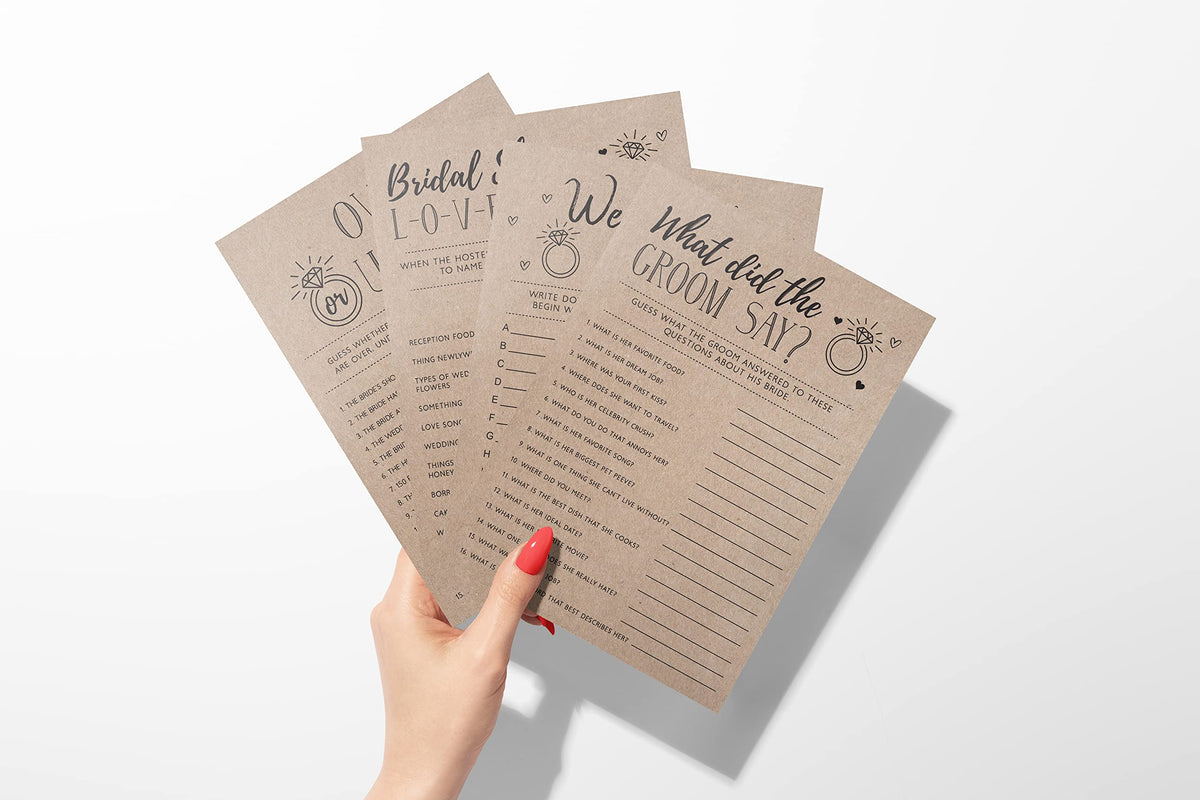 OV
or U
GUESS WHETHER
ARE OVER, UND
1. THE BRIDE'S SHO
2. THE BRIDE HA
3. THE BRIDE A
4. THE WEDD
5. THE BRI
6. THE H
7. 150
8. TH
9.
Bridal S
L-O-V-E
WHEN THE HOSTE
TO NAME
RECEPTION FOOD
THING NEWLYW
TYPES OF WED
FLOWERS
SOMETHING
LOVE SONG
WEDDING
THINGS
HONEY
BORR
CAK
W
15.
We
WRITE DO
BEGIN W
A
B
C
D
E
F
G
H
What did the
GROOM SAY?
GUESS WHAT THE GROOM ANSWERED TO THESE
QUESTIONS ABOUT HIS BRIDE.
1. WHAT IS HER FAVORITE FOOD?
2. WHAT IS HER DREAM JOB?
3. WHERE WAS YOUR FIRST KISS?
4. WHERE DOES SHE WANT TO TRAVEL?
5. WHO IS HER CELEBRITY CRUSH?
6. WHAT DO YOU DO THAT ANNOYS HER?
7. WHAT IS HER FAVORITE SONG?
8. WHAT IS HER BIGGEST PET PEEVE?
9. WHAT IS ONE THING SHE CAN'T LIVE WITHOUT?
10. WHERE DID YOU MEET?
11. WHAT IS THE BEST DISH THAT SHE COOKS?
12. WHAT IS HER IDEAL DATE?
13. WHAT IS HER ITE MOVIE?
14. WHAT ONE DOES SHE REALLY HATE?
15. WHAT WA JOB?
16. WHAT IS ORD THAT BEST DESCRIBES HER?